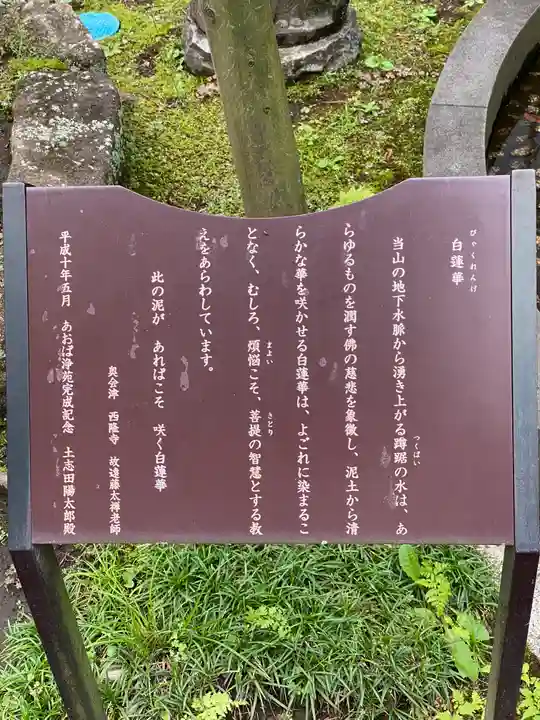 びゃくれんげ
白蓮華
当山の地下水脈から湧き上がる蹲踞の水は、あ
つくばい
らゆるものを潤す佛の慈悲を象徴し、泥土から清
らかな華を咲かせる白蓮華は、よごれに染まるこ
となく、むしろ、煩悩こそ、菩提の智慧とする教
まよい
さとり
えをあらわしています。
此の泥が あればこそ 咲く白蓮華
奥会津 西隆寺 故遠藤太禅老師
平成十年五月 あおば浄苑完成記念 土志田陽太郎殿